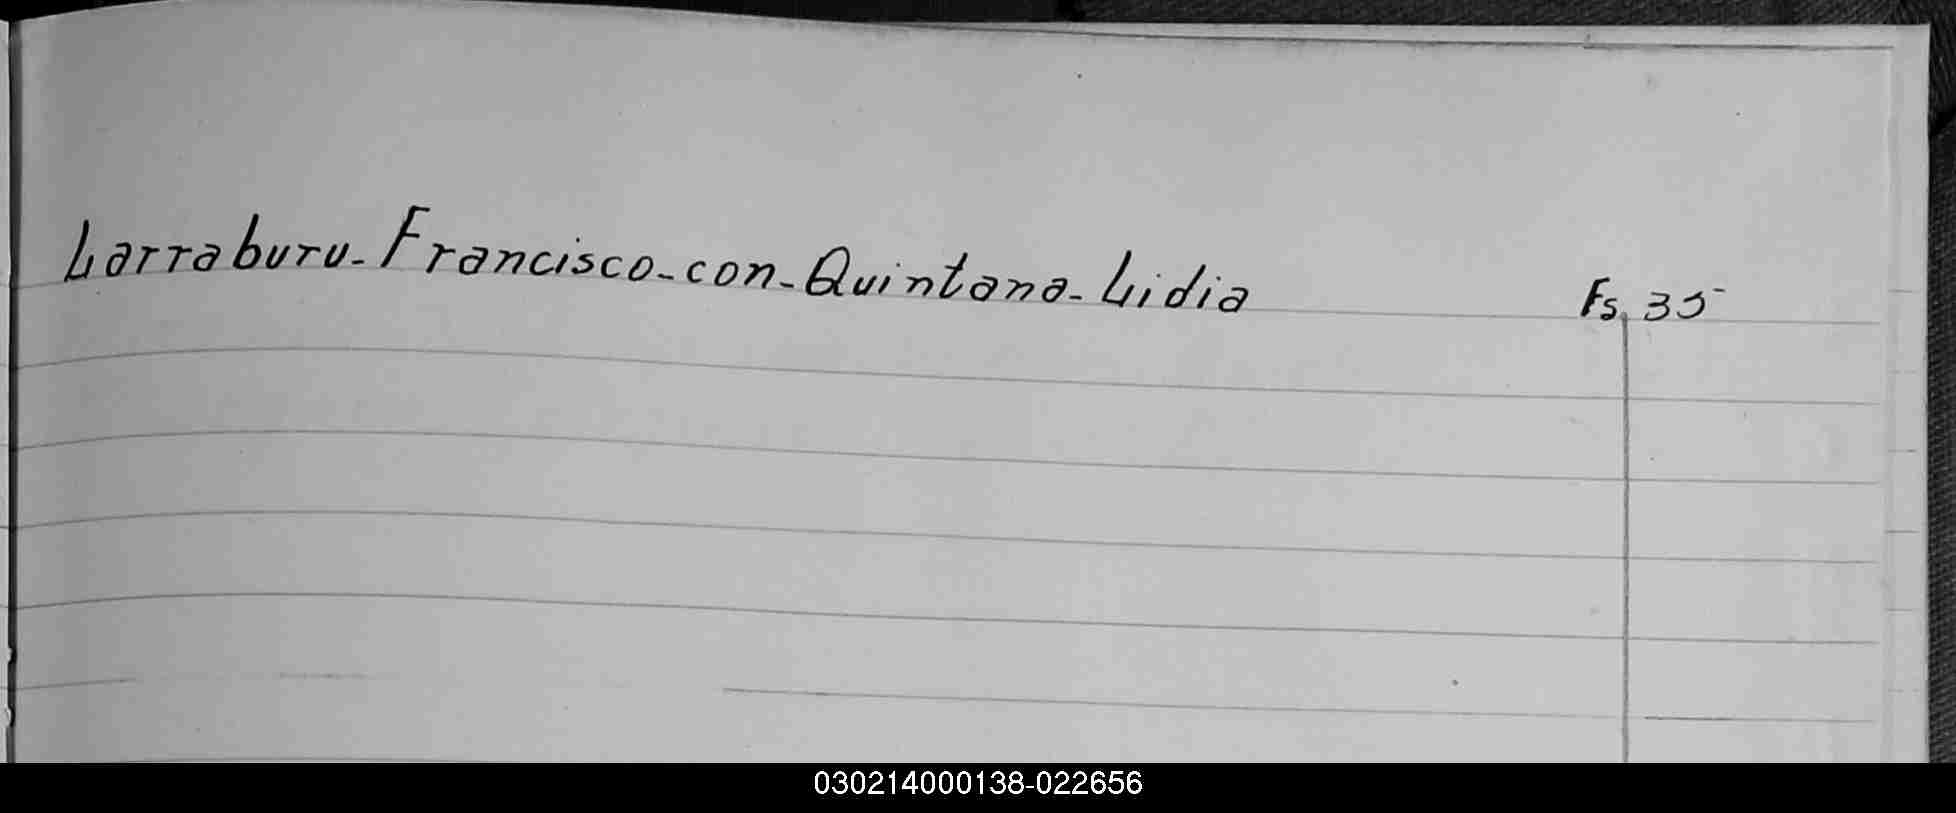 Larraburu-Francisco-con-Quintana-Lidia Fs. 35
030214000138-022656